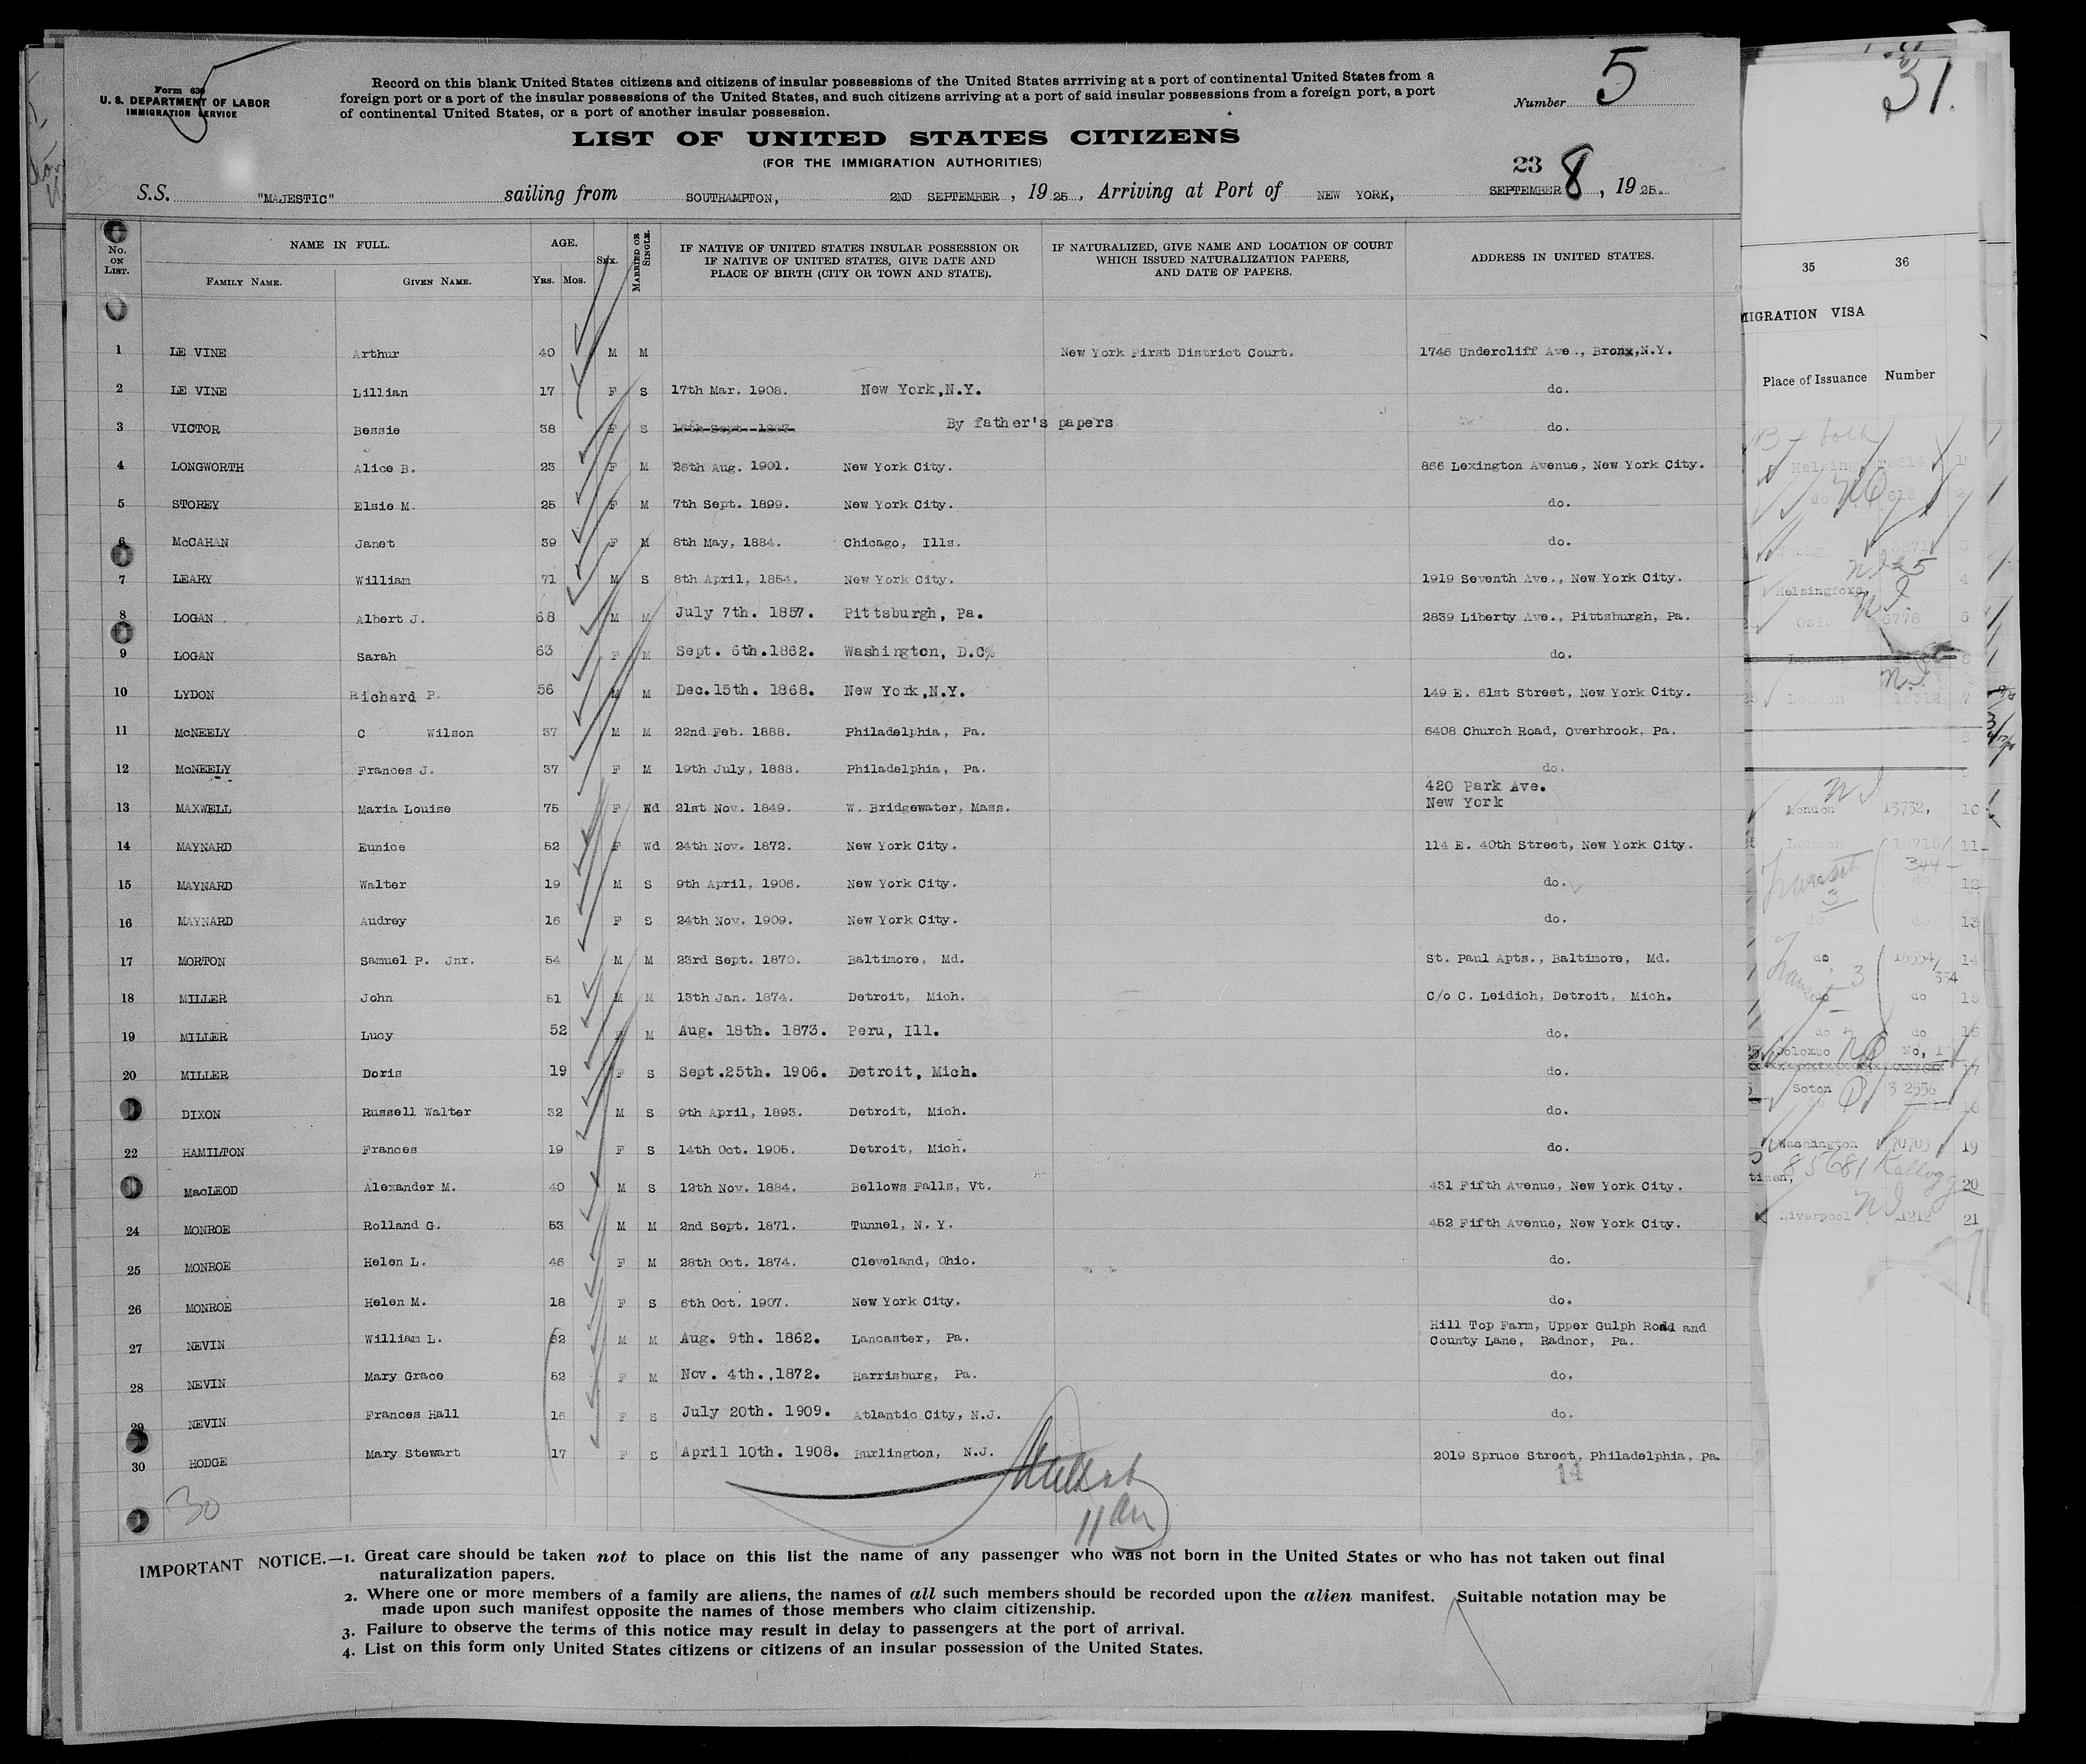 Form 630
U. S. DEPARTMENT OF LABOR
IMMIGRATION SERVICE
Record on this blank United States citizens and citizens of insular possessions of the United States arrriving at a port of continental United States from a
foreign port or a port of the insular possessions of the United States, and such citizens arriving at a port of said insular possessions from a foreign port, a port
of continental United States, or a port of another insular possession.
Number 5
LIST OF UNITED STATES CITIZENS
(FOR THE IMMIGRATION AUTHORITIES)
23
S.S. "MAJESTIC" sailing from SOUTHAMPTON, 2ND SEPTEMBER, 1925, Arriving at Port of NEW YORK, SEPTEMBER 8, 1925.
No. ON LIST. NAME IN FULL. AGE. SEX. MARRIED OR SINGLE. IF NATIVE OF UNITED STATES INSULAR POSSESSION OR IF NATIVE OF UNITED STATES, GIVE DATE AND PLACE OF BIRTH (CITY OR TOWN AND STATE). IF NATURALIZED, GIVE NAME AND LOCATION OF COURT WHICH ISSUED NATURALIZATION PAPERS, AND DATE OF PAPERS. ADDRESS IN UNITED STATES.
FAMILY NAME. GIVEN NAME. YRS. MOS.
1 LE VINE Arthur 40 M M New York First District Court. 1746 Undercliff Ave., Bronx,N.Y.
2 LE VINE Lillian 17 F S 17th Mar. 1908. New York,N.Y. do.
3 VICTOR Bessie 38 F S 16th Sept. 1887. By father's papers do.
4 LONGWORTH Alice B. 23 F M 26th Aug. 1901. New York City. 866 Lexington Avenue, New York City.
5 STOREY Elsie M. 25 F M 7th Sept. 1899. New York City. do.
6 McCAHAN Janet 39 F M 8th May, 1884. Chicago, Ills. do.
7 LEARY William 71 M S 8th April, 1854. New York City. 1919 Seventh Ave., New York City.
8 LOGAN Albert J. 68 M M July 7th. 1857. Pittsburgh, Pa. 2839 Liberty Ave., Pittsburgh, Pa.
9 LOGAN Sarah 63 F M Sept. 6th.1862. Washington, D.C% do.
10 LYDON Richard P. 56 M M Dec.15th. 1868. New York,N.Y. 149 E. 61st Street, New York City.
11 McNEELY C Wilson 37 M M 22nd Feb. 1888. Philadelphia, Pa. 6408 Church Road, Overbrook, Pa.
12 McNEELY Frances J. 37 F M 19th July, 1888. Philadelphia, Pa. do.
13 MAXWELL Maria Louise 75 F Wd 21st Nov. 1849. W. Bridgewater, Mass. 420 Park Ave. New York
14 MAYNARD Eunice 52 F Wd 24th Nov. 1872. New York City. 114 E. 40th Street, New York City.
15 MAYNARD Walter 19 M S 9th April, 1906. New York City. do.
16 MAYNARD Audrey 16 F S 24th Nov. 1909. New York City. do.
17 MORTON Samuel P. Jnr. 54 M M 23rd Sept. 1870. Baltimore, Md. St. Paul Apts., Baltimore, Md.
18 MILLER John 51 M M 13th Jan. 1874. Detroit, Mich. C/o C. Leidich, Detroit, Mich.
19 MILLER Lucy 52 F M Aug. 18th. 1873. Peru, Ill. do.
20 MILLER Doris 19 F S Sept.25th. 1906. Detroit, Mich. do.
DIXON Russell Walter 32 M S 9th April, 1893. Detroit, Mich. do.
22 HAMILTON Frances 19 F S 14th Oct. 1905. Detroit, Mich. do.
MacLEOD Alexander M. 40 M S 12th Nov. 1884. Bellows Falls, Vt. 431 Fifth Avenue, New York City.
24 MONROE Rolland G. 53 M M 2nd Sept. 1871. Tunnel, N. Y. 452 Fifth Avenue, New York City.
25 MONROE Helen L. 46 F M 28th Oct. 1874. Cleveland, Ohio. do.
26 MONROE Helen M. 18 F S 6th Oct. 1907. New York City. do.
27 NEVIN William L. 62 M M Aug. 9th. 1862. Lancaster, Pa. Hill Top Farm, Upper Gulph Road and County Lane, Radnor, Pa.
28 NEVIN Mary Grace 52 F M Nov. 4th.,1872. Harrisburg, Pa. do.
29 NEVIN Frances Hall 16 F S July 20th. 1909. Atlantic City, N.J. do.
30 HODGE Mary Stewart 17 F S April 10th. 1908. Burlington, N.J. 2019 Spruce Street, Philadelphia, Pa
14
30
IMPORTANT NOTICE.—1. Great care should be taken not to place on this list the name of any passenger who was not born in the United States or who has not taken out final
naturalization papers.
2. Where one or more members of a family are aliens, the names of all such members should be recorded upon the alien manifest. Suitable notation may be
made upon such manifest opposite the names of those members who claim citizenship.
3. Failure to observe the terms of this notice may result in delay to passengers at the port of arrival.
4. List on this form only United States citizens or citizens of an insular possession of the United States.
31.
35 36
MIGRATION VISA
Place of Issuance Number
Helsingfors
Oslo 6778 5
London 7
London 13732, 10
London 11
do 12
do do 13
do 14
do do 15
do do 16
Colombo No, 1
17
Soton
Washington 70703 19
85681 Kellogg
20
Liverpool 1212 21